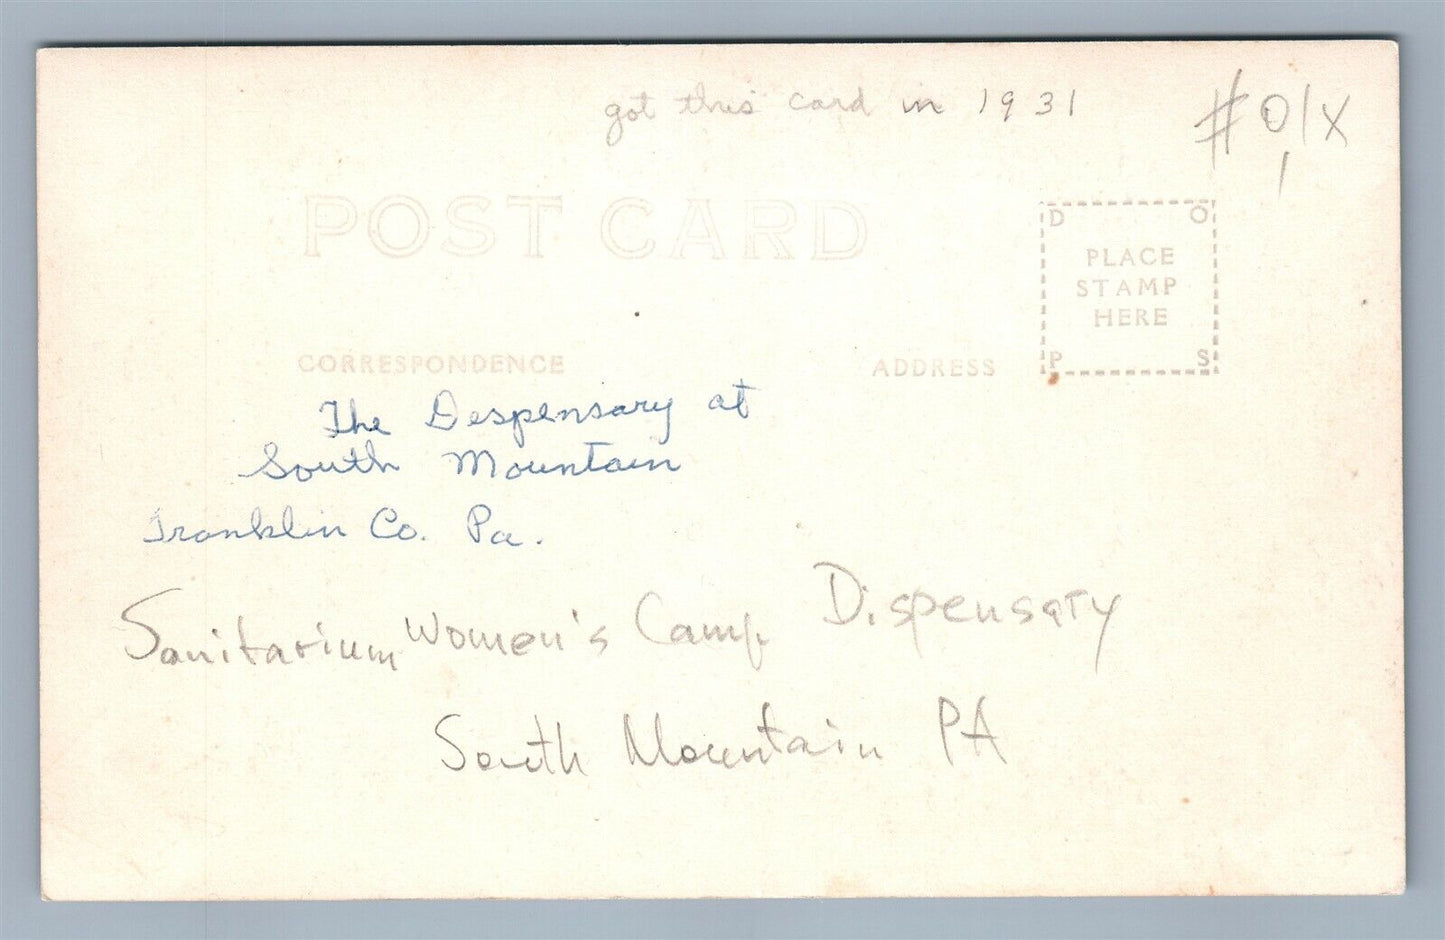 got this card in 1931
#01X
POST CARD
D O
PLACE
STAMP
HERE
P S
CORRESPONDENCE
ADDRESS
The Despensary at
South Mountain
Franklin Co. Pa.
Sanitarium Women's Camp Dispensary
South Mountain PA